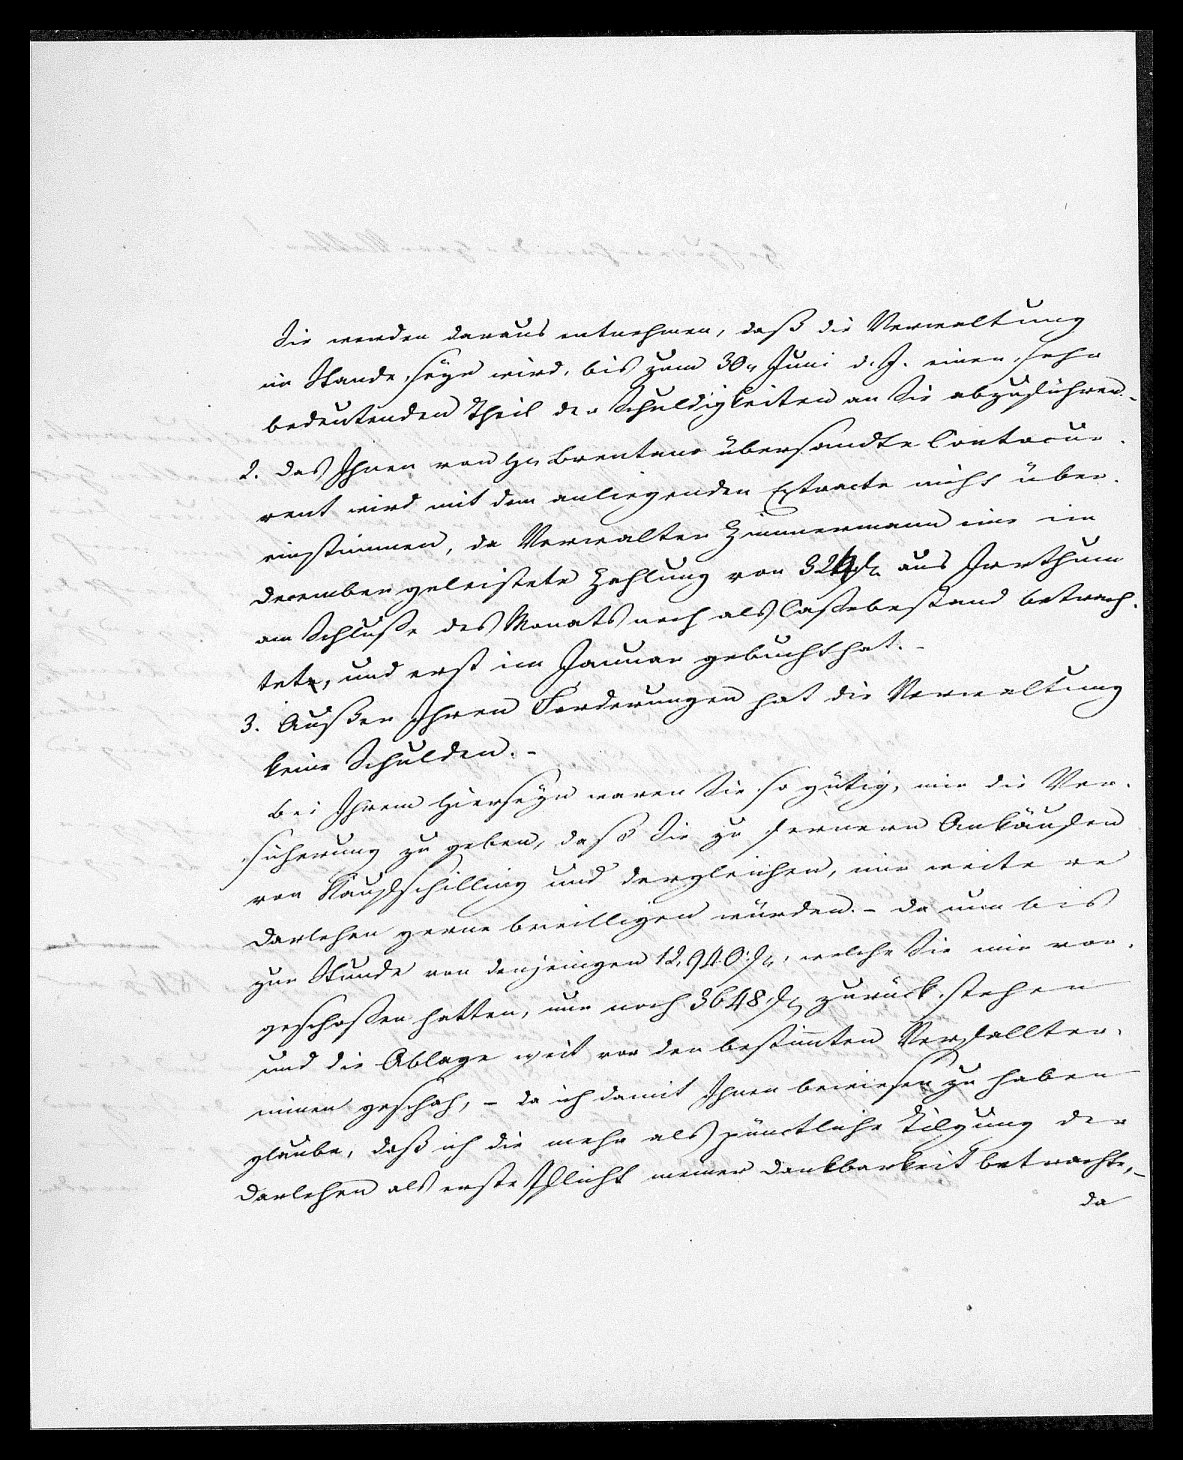 Sie werden daraus entnehmen, daß die Verwaltung
im Stande seyn wird, bis zum 30n Juni d. J. einen sehr
bedeutenden Theil der Schuldigkeiten an Sie abzuführen.-
2. Das Ihnen von Hn Brentano übersandte Contocur-
rent wird mit dem anliegenden Extracte nicht über-
einstimmen, da Verwalter Zimmermann eine im
December geleistete Zahlung von 324 fl. aus Irrthum
am Schluße des Monats noch als Cassebestand betrach-
tete, und erst im Januar gebucht hat.-
3. Außer Ihren Forderungen hat die Verwaltung
keine Schulden.-
Bei Ihrem Hierseyn waren Sie so gütig, mir die Ver-
sicherung zu geben, daß Sie zu fernern Ankäufen
von Kaufschilling und dergleichen, mir weitere
Darlehen gerne bewilligen würden.- Da nun bis
zur Stunde von denjenigen 12,940 fl., welche Sie mir vor-
geschoßen hatten, nur noch 3648 fl. zurück stehen
und die Ablage weit vor den bestimten Verfallter-
minen geschah, - da ich damit Ihnen bewiesen zu haben
glaube, daß ich die mehr als pünctliche Tilgung der
Darlehen als erste Pflicht meiner Dankbarkeit betrachte,-
da